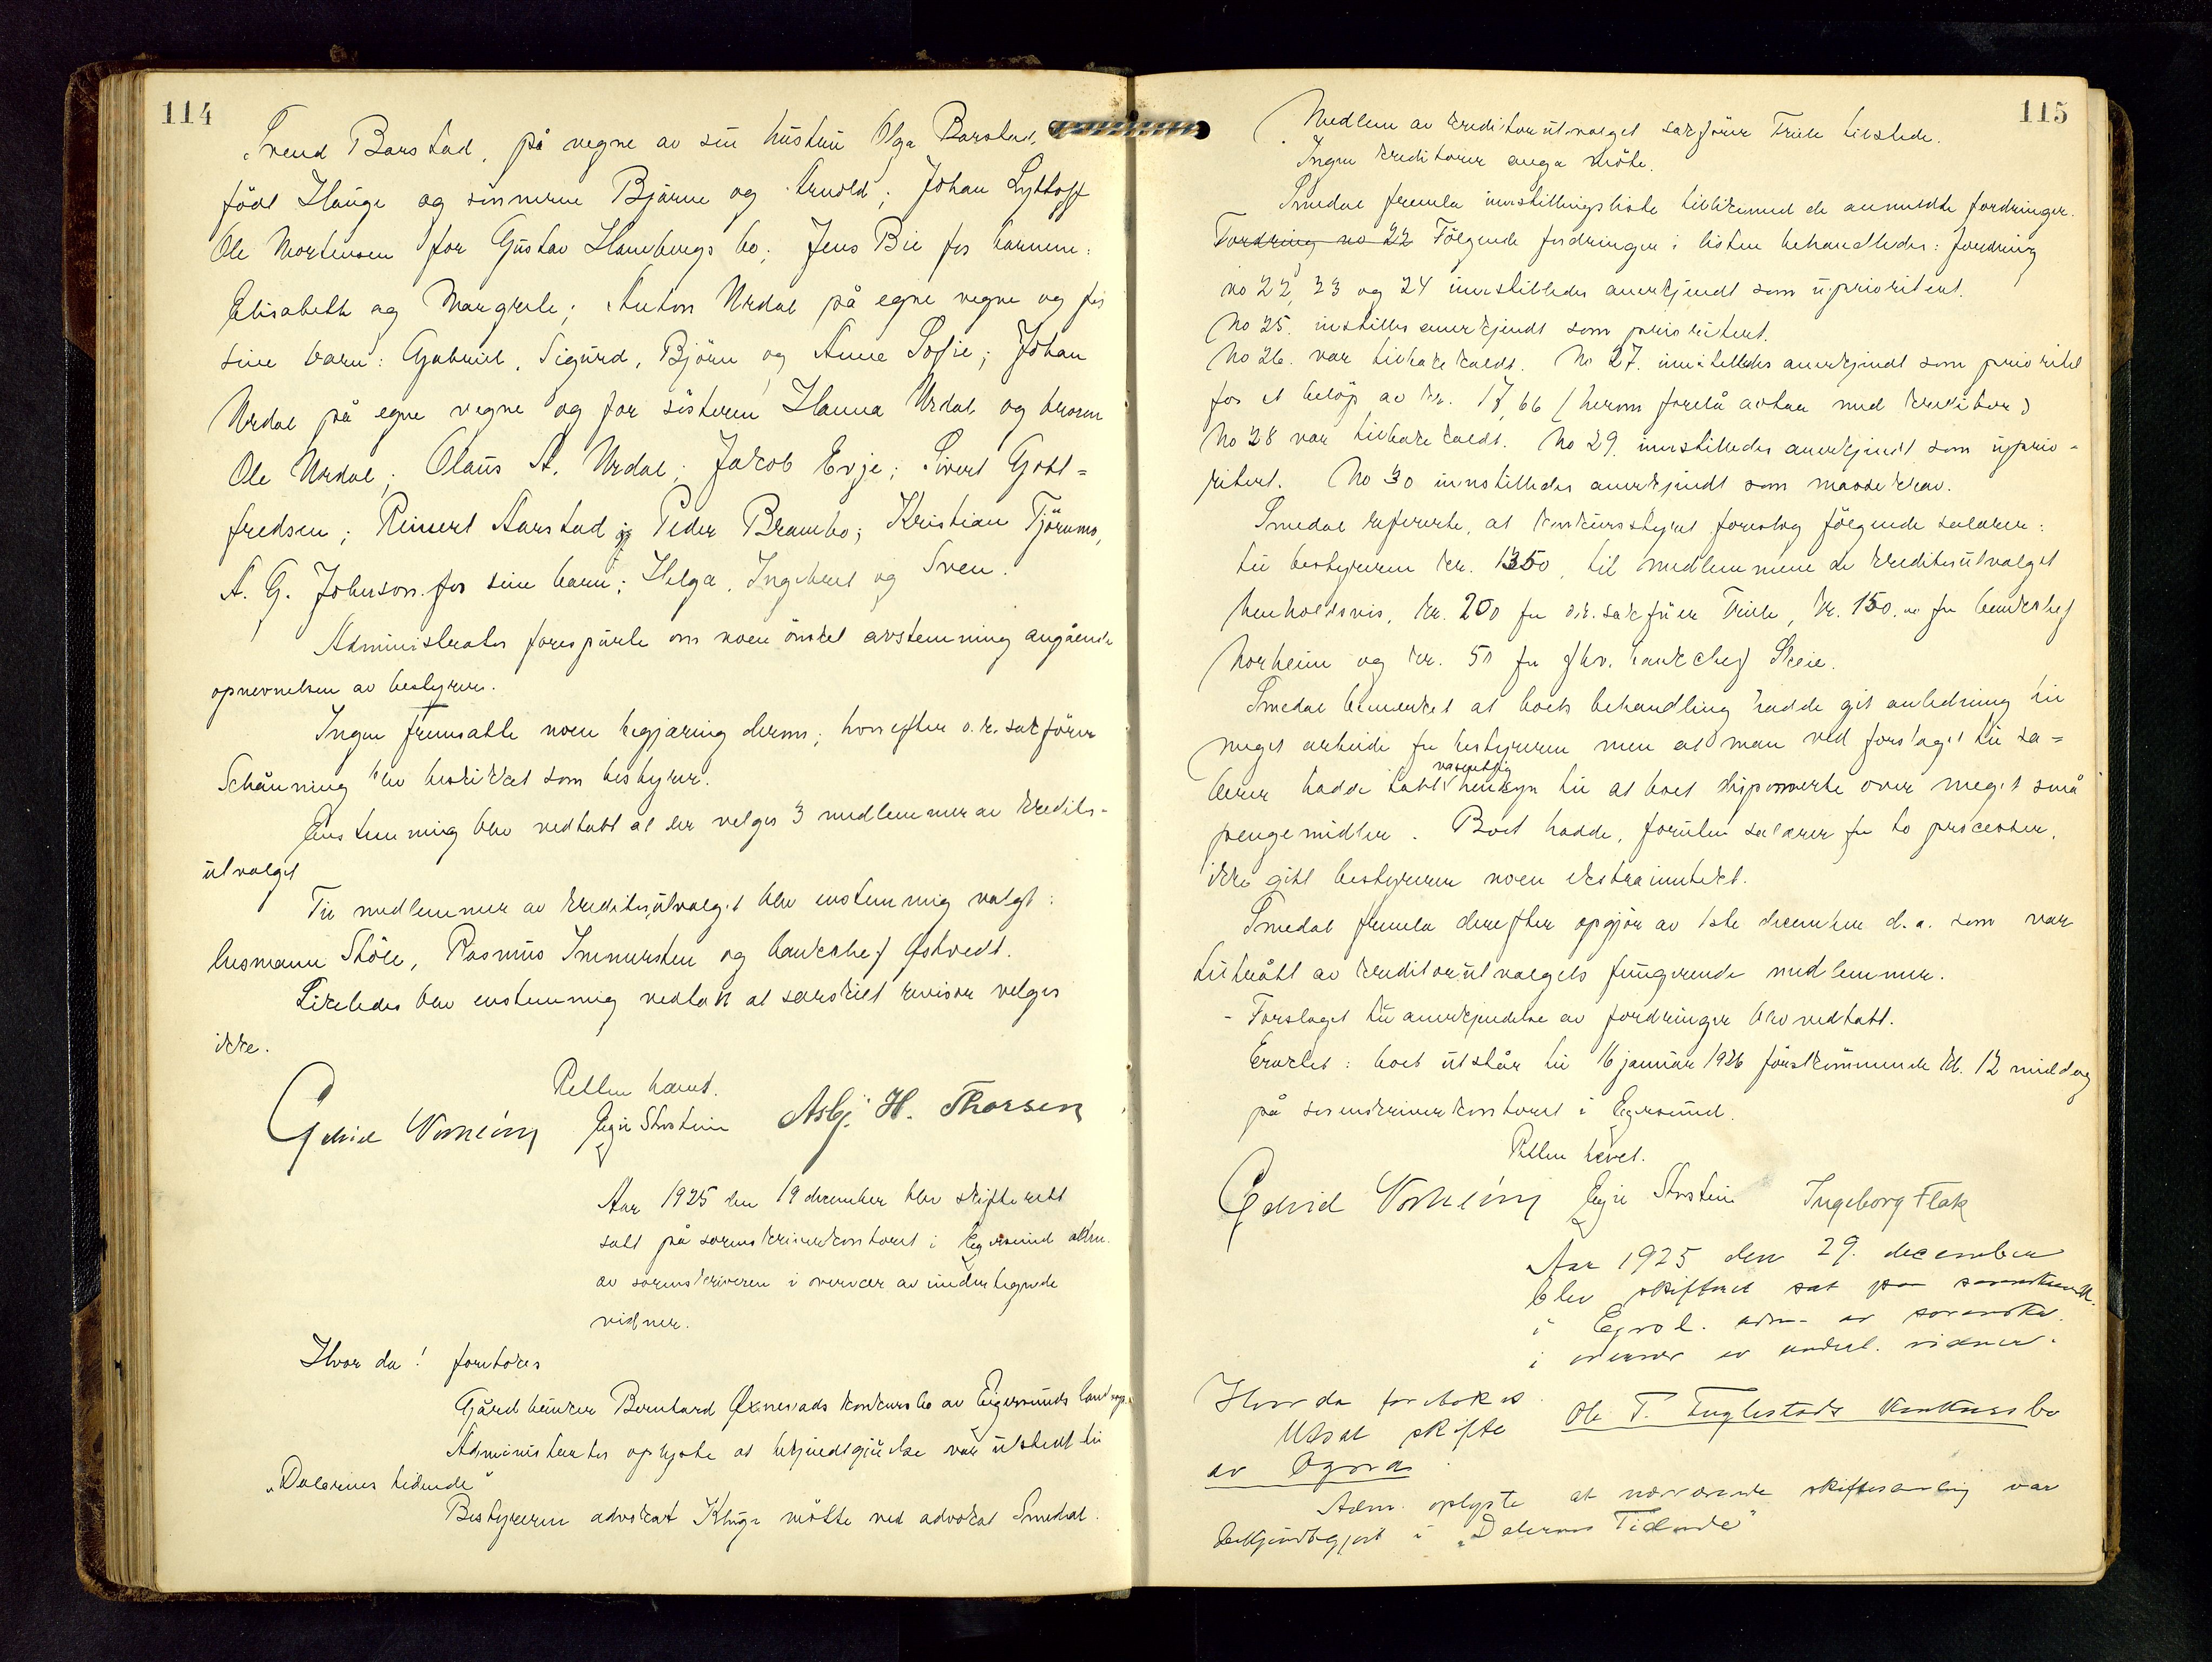 114
Svend Barstad, på vegne av sin hustru Olga Barstad,
född Hauge og sönnerne Bjarne og Arnold; Johan Lyktoff
Ole Mortensen for Gustav Hambergs bo; Jens Bie for barnene:
Elisabeth og Margrete; Anton Urdal på egne vegne og for
sine barn: Gabriel, Sigurd, Björn og Anne Sofie; Johan
Urdal på egne vegne og for sösteren Hanna Urdal og broren
Ole Urdal; Olaus A. Urdal; Jakob Evje; Sivert Gott=
fredsen; Reinert Aarstad; Peder Brambo; Kristian Tjörumo,
A. G. Johnson for sine barn; Helga, Ingebret og Sven.
Administrator forespurte om noen önsket avstemning angående
opnevnelsen av bestyrer.
Ingen fremsatte noen begjæring derom; hvorefter o.r. sakförer
Schånning blev beskikket som bestyrer.
Enstemmig blev vedtatt at der velges 3 medlemmer av kreditor-
utvalget
Til medlemmer av kreditorutvalget blev enstemmig valgt:
lensmann Stöle, Rasmus Immersten og bankchef Östvedt.
Likeledes blev enstemmig vedtatt at særskilt revisor velges
ikke.
Retten hævet.
Edvid Egie Storstein Asbj. H. Thorsen
Aar 1925 den 19 december blev skifterett
satt på sorenskriverkontoret i Egersund adm.
av sorenskriveren i overvær av undertegnede
vidner.
Hvor da! foretokes
Gårdbruker Bernhard Øxnevads konkursbo av Eigersunds landsogn
Administrator oplyste at bekjendtgjörelse var utstedt til
„Dalernes tidende“
Bestyreren advokat Kluge mötte ved advokat Smedal.
115
Medlem av kreditorutvalget sakförer Tride tilstede.
Ingen kreditorer anga möte.
Smedal fremla innstillingsliste tillikemed de anmeldte fordringer.
Fordring no 22 Fölgende fordringer i listen behandledes: fordring
no 22, 23 og 24 innstilledes anerkjendt som uprioritert.
No 25. instilles anerkjendt som prioritert.
No 26. var tilbakekaldt. No 27. innstilledes anerkjendt som prioritet
for et belöp av kr. 17,66 (herom forelå avtale med kreditor)
No 28 var tilbakekaldt. No 29. innstilledes anerkjendt som uprio-
ritert. No 30 innstilledes anerkjendt som massekrav.
Smedal refererte, at konkursstyret foreslog fölgende salærer:
til bestyreren kr. 1350, til medlemmene av kreditorutvalget
henholdsvis, kr. 200 for o.r. sakförer Tride, kr. 150.00 for bankchef
Norheim og kr. 50 for fhv. bankchef Skeie.
Smedal bemerket at boets behandling hadde git anledning til
meget arbeide for bestyreren men at man ved forslaget til sa=
lærer hadde tatt væsentlig hensyn til at boet disponerte over meget små
pengemidler. Boet hadde, foruten salærer for to processer,
ikke gitt bestyreren noen ekstrainntekt.
Smedal fremla derefter opgjör av 1ste december d.a. som var
tiltrått av kreditorutvalgets fungerende medlemmer.
- Forslaget til anerkjendelse av fordringer blev vedtatt.
Eraktet: boet utstår til 16 januar 1926 förstkommende kl. 12 middag
på sorenskriverkontoret i Egersund.
Retten hævet.
Edvid Egie Storstein Ingeborg Flak
Aar 1925 den 29. december
blev skifteret sat paa sorenskriverk.
i Egers l. adm. av sorenskr.
i overvær av undert. vidner.
Hvor da foretokes
Utsat skifte Ole T. Fuglestads konkursbo
av Ogna
Adm. oplyste at nærværende skiftesamling var
bekjendtgjort i „Dalernes Tidende“